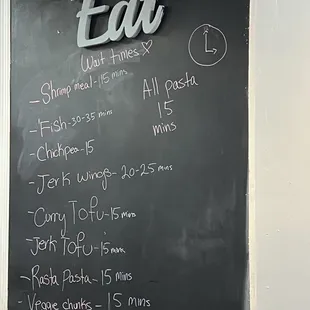 Eat
Wait times ♡
- Shrimp meal - 15 mins
All pasta
15
mins
- Fish - 30-35 min
- Chickpea - 15
- Jerk wings - 20-25 mins
- Curry Tofu - 15 mins
- Jerk Tofu - 15 mins
- Rasta Pasta - 15 mins
- Veggie chunks - 15 mins